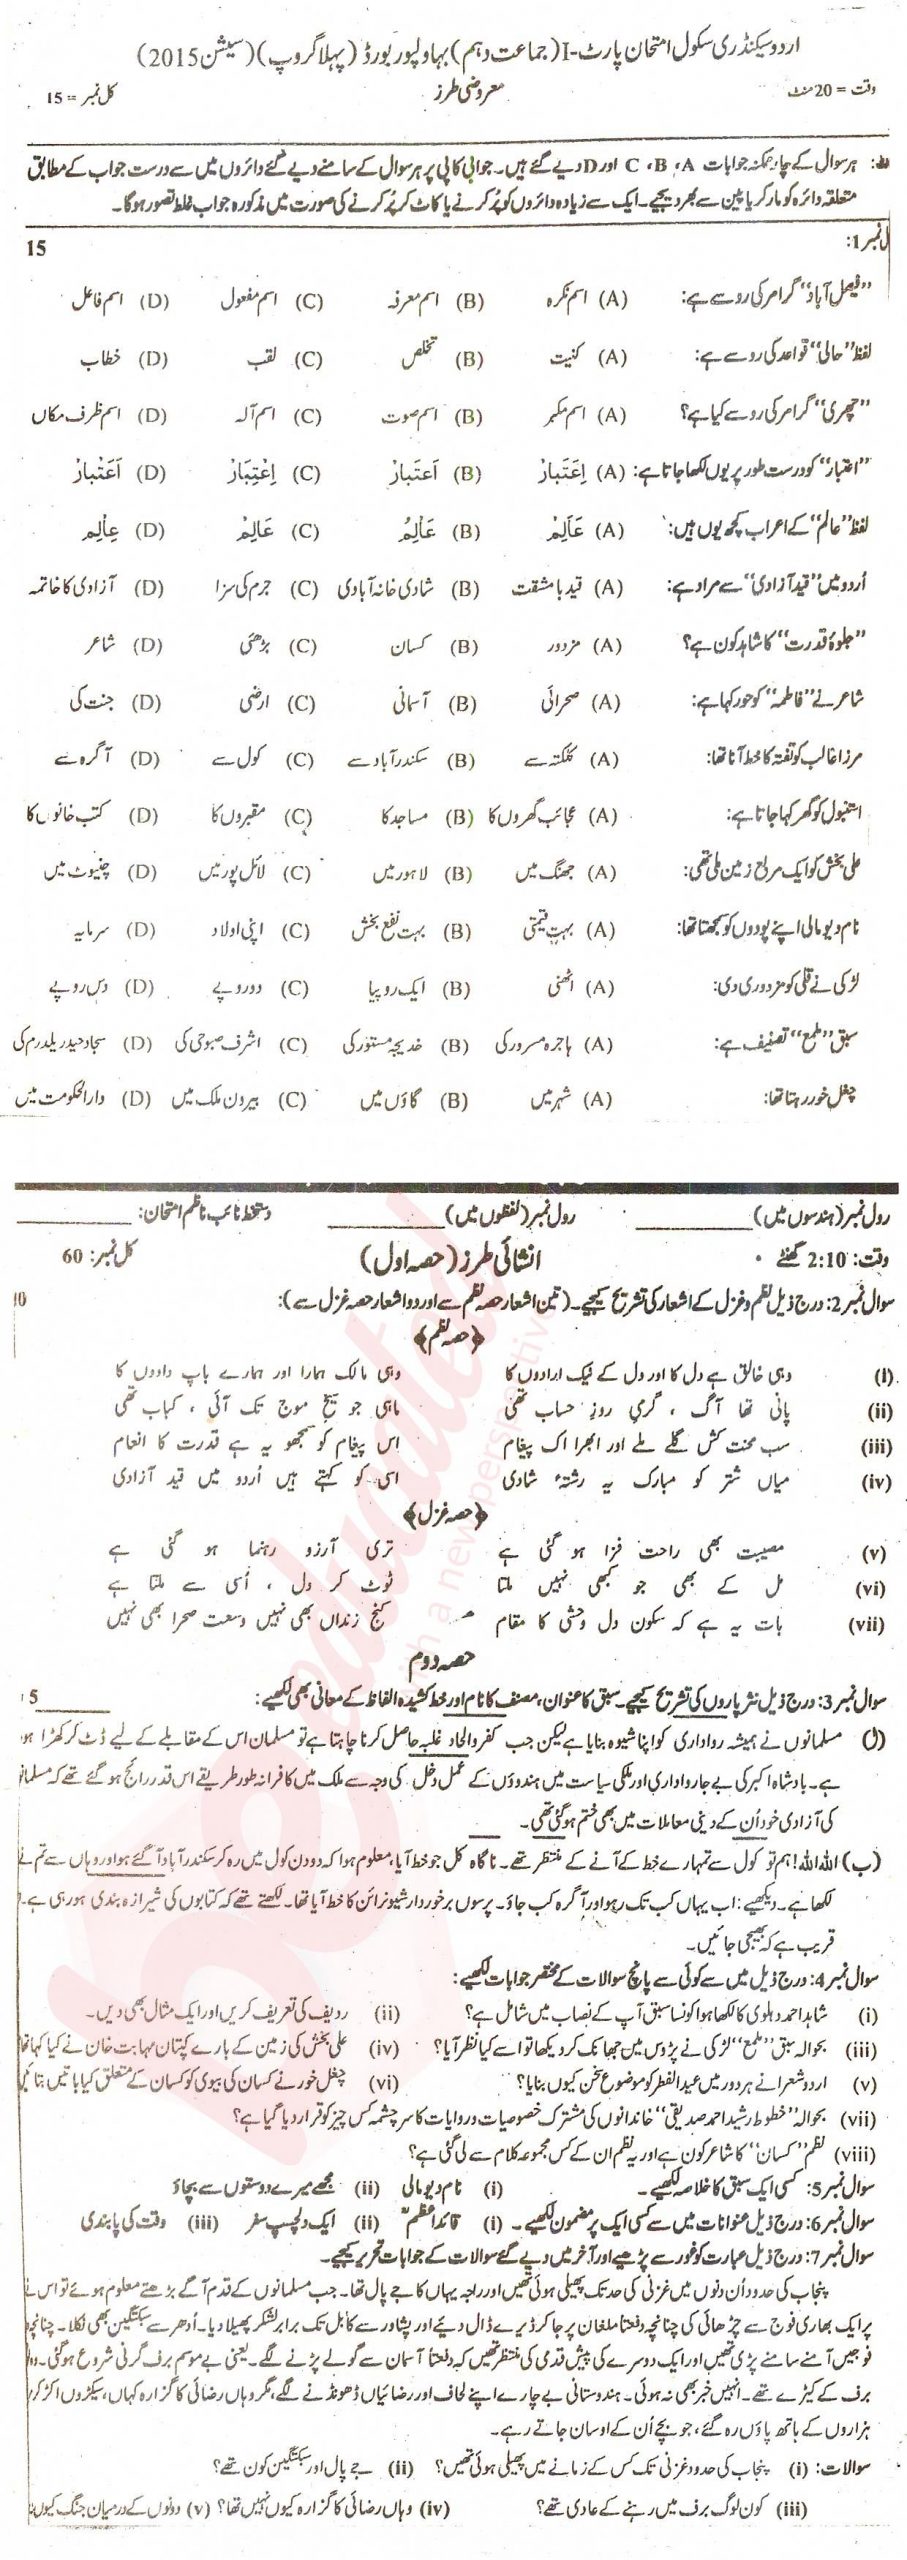 اردو سیکنڈری سکول امتحان پارٹ-I (جماعت دہم) بہاولپور بورڈ (پہلا گروپ) (سیشن 2015)
وقت = 20 منٹ معروضی طرز کل نمبر = 15
ہر سوال کے چار ممکنہ جوابات C ،B ،A اور D دیے گئے ہیں۔ جوابی کاپی پر ہر سوال کے سامنے دیے گئے دائروں میں سے درست جواب کے مطابق
متعلقہ دائرہ کو مارکر یا پین سے بھر دیجیے۔ ایک سے زیادہ دائروں کو پُر کرنے یا کاٹ کر پُر کرنے کی صورت میں مذکورہ جواب غلط تصور ہوگا۔
ل نمبر 1: 15
”فیصل آباد“ گرامر کی رو سے ہے: (A) اسم نکرہ (B) اسم معرفہ (C) اسم مفعول (D) اسم فاعل
لفظ ”حالی“ قواعد کی رو سے ہے: (A) کنیت (B) تخلص (C) لقب (D) خطاب
”چھری“ گرامر کی رو سے کیا ہے؟ (A) اسم مکبر (B) اسم صوت (C) اسم آلہ (D) اسم ظرف مکاں
”اعتبار“ کو درست طور پر یوں لکھا جاتا ہے: (A) اِعَتَبَارْ (B) اَعتَبَارْ (C) اِعْتِبَارْ (D) اَعَتْبارْ
لفظ ”عالم“ کے اعراب کچھ یوں ہیں: (A) عَالَمْ (B) عَالْمُ (C) عَالِمْ (D) عِالْمِ
اُردو میں ”قید آزادی“ سے مراد ہے: (A) قید با مشقت (B) شادی خانہ آبادی (C) جرم کی سزا (D) آزادی کا خاتمہ
”جلوۂ قدرت“ کا شاہد کون ہے؟ (A) مزدور (B) کسان (C) بڑھئی (D) شاعر
شاعر نے ”فاطمہ“ کو حور کہا ہے: (A) صحرائی (B) آسمانی (C) ارضی (D) جنت کی
مرزا غالب کو تفتہ کا خط آنا تھا: (A) کلکتہ سے (B) سکندر آباد سے (C) کول سے (D) آگرہ سے
استنبول کو گھر کہا جاتا ہے: (A) عجائب گھروں کا (B) مساجد کا (C) مقبروں کا (D) کتب خانوں کا
علی بخش کو ایک مربع زمین ملی تھی: (A) جھنگ میں (B) لاہور میں (C) لائل پور میں (D) چنیوٹ میں
نام دیو مالی اپنے پودوں کو سمجھتا تھا: (A) بہت قیمتی (B) بہت نفع بخش (C) اپنی اولاد (D) سرمایہ
لڑکی نے قلی کو مزدوری دی: (A) اٹھنی (B) ایک روپیا (C) دو روپے (D) دس روپے
سبق ”ملمع“ تصنیف ہے: (A) ہاجرہ مسرور کی (B) خدیجہ مستور کی (C) اشرف صبوحی کی (D) سجاد حیدر یلدرم کی
چغل خور رہتا تھا: (A) شہر میں (B) گاؤں میں (C) بیرون ملک میں (D) دارالحکومت میں
رول نمبر (ہندسوں میں) رول نمبر (لفظوں میں) دستخط نائب ناظم امتحان:
وقت: 2:10 گھنٹے انشائی طرز (حصہ اول) کل نمبر: 60
سوال نمبر 2: درج ذیل نظم و غزل کے اشعار کی تشریح کیجیے۔ (تین اشعار حصہ نظم سے اور دو اشعار حصہ غزل سے): 10
﴿حصہ نظم﴾
(i) وہی خالق ہے دل کا اور دل کے نیک ارادوں کا وہی مالک ہمارا اور ہمارے باپ دادوں کا
(ii) پانی تھا آگ ، گرمیِ روزِ حساب تھی ماہی جو سیخ موج تک آئی ، کباب تھی
(iii) سب محنت کش گلے ملے اور ابھرا اک پیغام اس پیغام کو سمجھو یہ ہے قدرت کا انعام
(iv) میاں شتر کو مبارک یہ رشتۂ شادی اسی کو کہتے ہیں اُردو میں قید آزادی
﴿حصہ غزل﴾
(v) مصیبت بھی راحت فزا ہو گئی ہے تری آرزو رہنما ہو گئی ہے
(vi) مل کے بھی جو کبھی نہیں ملتا ٹوٹ کر دل ، اُسی سے ملتا ہے
(vii) بات یہ ہے کہ سکون دل وحشی کا مقام کنج زنداں بھی نہیں وسعت صحرا بھی نہیں
حصہ دوم
سوال نمبر 3: درج ذیل نثر پاروں کی تشریح کیجیے۔ سبق کا عنوان، مصنف کا نام اور خط کشیدہ الفاظ کے معانی بھی لکھیے: 5
(ل) مسلمانوں نے ہمیشہ رواداری کو اپنا شیوہ بنایا ہے لیکن جب کفر و الحاد غلبہ حاصل کرنا چاہتا ہے تو مسلمان اس کے مقابلے کے لیے ڈٹ کر کھڑا ہو
ہے۔ بادشاہ اکبر کی بے جا رواداری اور ملکی سیاست میں ہندوؤں کے عمل دخل کی وجہ سے ملک میں کافرانہ طور طریقے اس قدر رائج ہو گئے تھے کہ مسلمانو
کی آزادی خود اُن کے دینی معاملات میں بھی ختم ہو گئی تھی۔
(ب) اللہ اللہ! ہم تو کول سے تمہارے خط کے آنے کے منتظر تھے۔ ناگاہ کل جو خط آیا، معلوم ہوا کہ دو دن کول میں رہ کر سکندر آباد آ گئے ہو اور وہاں سے تم نے
لکھا ہے۔ دیکھیے: اب یہاں کب تک رہو اور آگرہ کب جاؤ۔ پرسوں برخوردار شیو نرائن کا خط آیا تھا۔ لکھتے تھے کہ کتابوں کی شیرازہ بندی ہو رہی ہے۔
قریب ہے کہ بھیجی جائیں۔
سوال نمبر 4: درج ذیل میں سے کوئی سے پانچ سوالات کے مختصر جوابات لکھیے:
(i) شاہد احمد دہلوی کا لکھا ہوا کونسا سبق آپ کے نصاب میں شامل ہے؟ (ii) ردیف کی تعریف کریں اور ایک مثال بھی دیں۔
(iii) بحوالہ سبق ”ملمع“ لڑکی نے پڑوس میں جھانک کر دیکھا تو اسے کیا نظر آیا؟ (iv) علی بخش کی زمین کے بارے کپتان مہابت خان نے کیا کہا تھا
(v) اردو شعرا نے ہر دور میں عید الفطر کو موضوع سخن کیوں بنایا؟ (vi) چغل خور نے کسان کی بیوی کو کسان کے متعلق کیا باتیں بتائیں
(vii) بحوالہ ”خطوط رشید احمد صدیقی“ خاندانوں کی مشترک خصوصیات و روایات کا سرچشمہ کس چیز کو قرار دیا گیا ہے؟
(viii) نظم ”کسان“ کا شاعر کون ہے اور یہ نظم ان کے کس مجموعہ کلام سے لی گئی ہے؟
سوال نمبر 5: کسی ایک سبق کا خلاصہ لکھیے۔ (i) نام دیو مالی (ii) مجھے میرے دوستوں سے بچاؤ
سوال نمبر 6: درج ذیل عنوانات میں سے کسی ایک پر مضمون لکھیے۔ (i) قائد اعظمؒ (ii) ایک دلچسپ سفر (iii) وقت کی پابندی
سوال نمبر 7: درج ذیل عبارت کو غور سے پڑھیے اور آخر میں دیے گئے سوالات کے جوابات تحریر کیجیے۔
پنجاب کی حدود اُن دنوں میں غزنی کی حد تک پھیلی ہوئی تھیں اور راجہ یہاں کا جے پال تھا۔ جب مسلمانوں کے قدم آگے بڑھتے معلوم ہوئے تو اس نے
پر ایک بھاری فوج سے چڑھائی کی چنانچہ دفعتاً ملغان پر جا کر ڈیرے ڈال دیئے اور پشاور سے کابل تک برابر لشکر پھیلا دیا۔ اُدھر سے سبکتگین بھی نکلا۔ چنانچہ
فوجیں آمنے سامنے پڑی تھیں اور ایک دوسرے کی پیش قدمی کی منتظر تھیں کہ دفعتاً آسمان سے گولے پڑنے لگے۔ یعنی بے موسم برف گرنی شروع ہو گئی۔ وہ
برف کے کیڑے تھے۔ انہیں خبر بھی نہ ہوئی۔ ہندوستانی بے چارے اپنے لحاف اور رضائیاں ڈھونڈنے لگے، مگر وہاں رضائی کا گزارہ کہاں، سیکڑوں اکڑ کر
ہزاروں کے ہاتھ پاؤں رہ گئے، جو بچے اُن کے اوسان جاتے رہے۔
سوالات: (i) پنجاب کی حدود غزنی تک کس کے زمانے میں پھیلی ہوئی تھیں؟ (ii) جے پال اور سبکتگین کون تھے؟
(iii) کون لوگ برف میں رہنے کے عادی تھے؟ (iv) وہاں رضائی کا گزارہ کیوں نہیں تھا؟ (v) دونوں کے درمیان جنگ کیوں